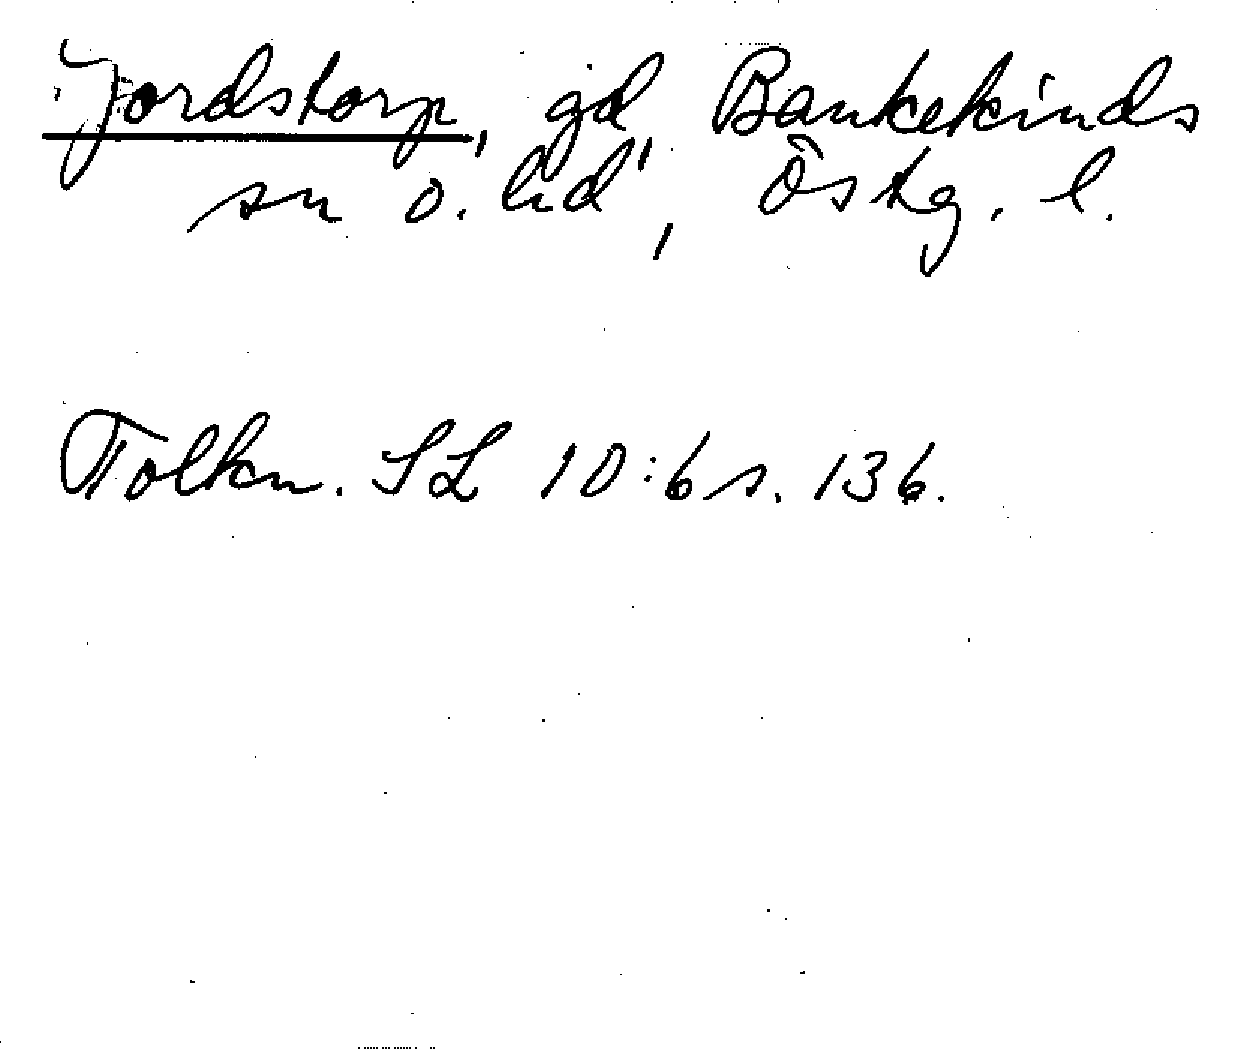 Jordstorp, gd, Bankekinds
sn o. hd, Östg. l.
Tolkn. SL 10:6 s. 136.